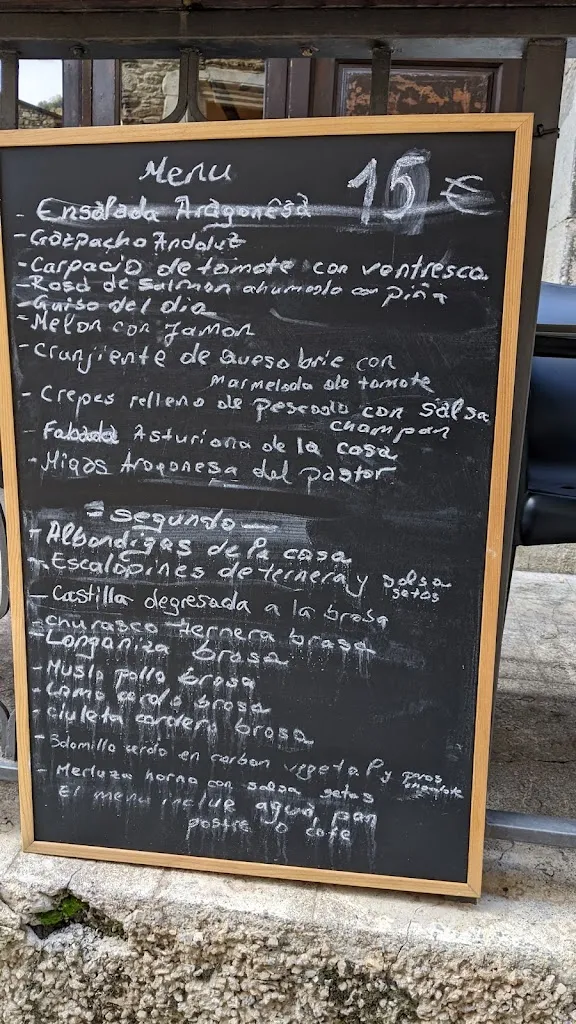 Menu 15 €
- Ensalada Aragonesa
- Gazpacho Andaluz
- Carpacio de tomate con ventresca
- Rosa de salmon ahumado con piña
- Guiso del dia
- Melon con Jamon
- Crunjiente de queso brie con
Marmelada de tomate
- Crepes relleno de pescado con salsa
champan
- Fabada Asturiana de la casa
- Migas Aragonesa del pastor
= segundo -
- Albondigas de la casa
- Escalopines de ternera y salsa
setas
- Castilla degresada a la brasa
- churasco ternera brasa
- Longaniza brasa
- Muslo pollo brasa
- Lomo cerdo brasa
- ciuleta cordero brasa
- Solomillo cerdo en carbon vegetal y
- Merluza horno con salsa setas
El menu incluie agua, pan
postre o cafe